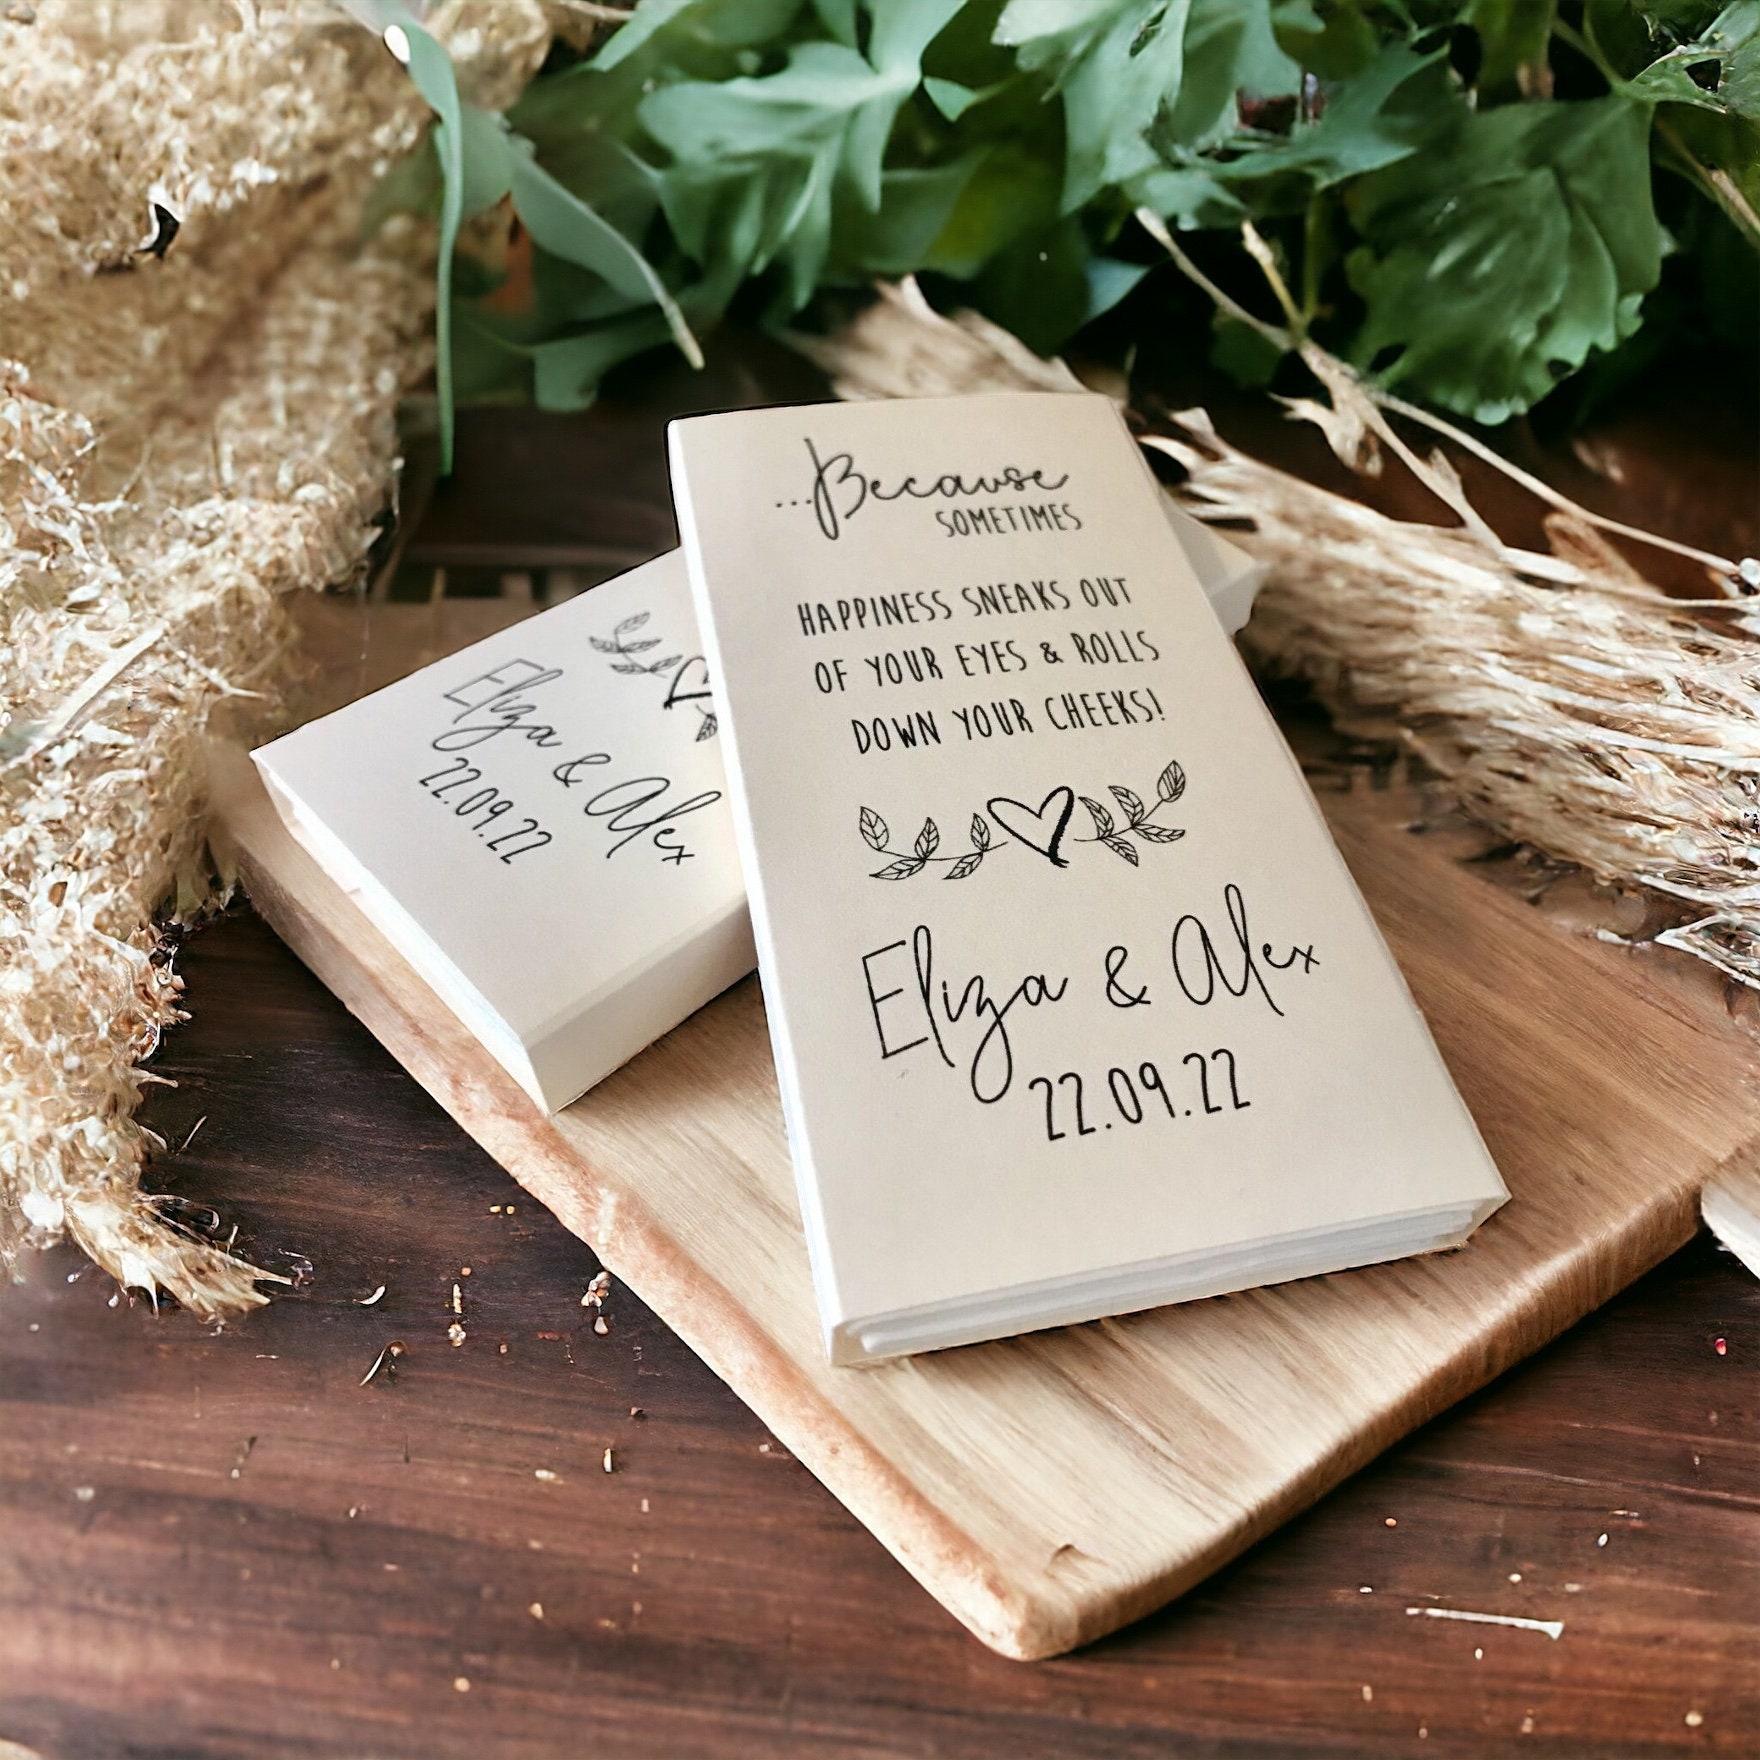 ...Because
SOMETIMES
HAPPINESS SNEAKS OUT
OF YOUR EYES & ROLLS
DOWN YOUR CHEEKS!
Eliza & Alex
22.09.22
Eliza & Alex
22.09.22